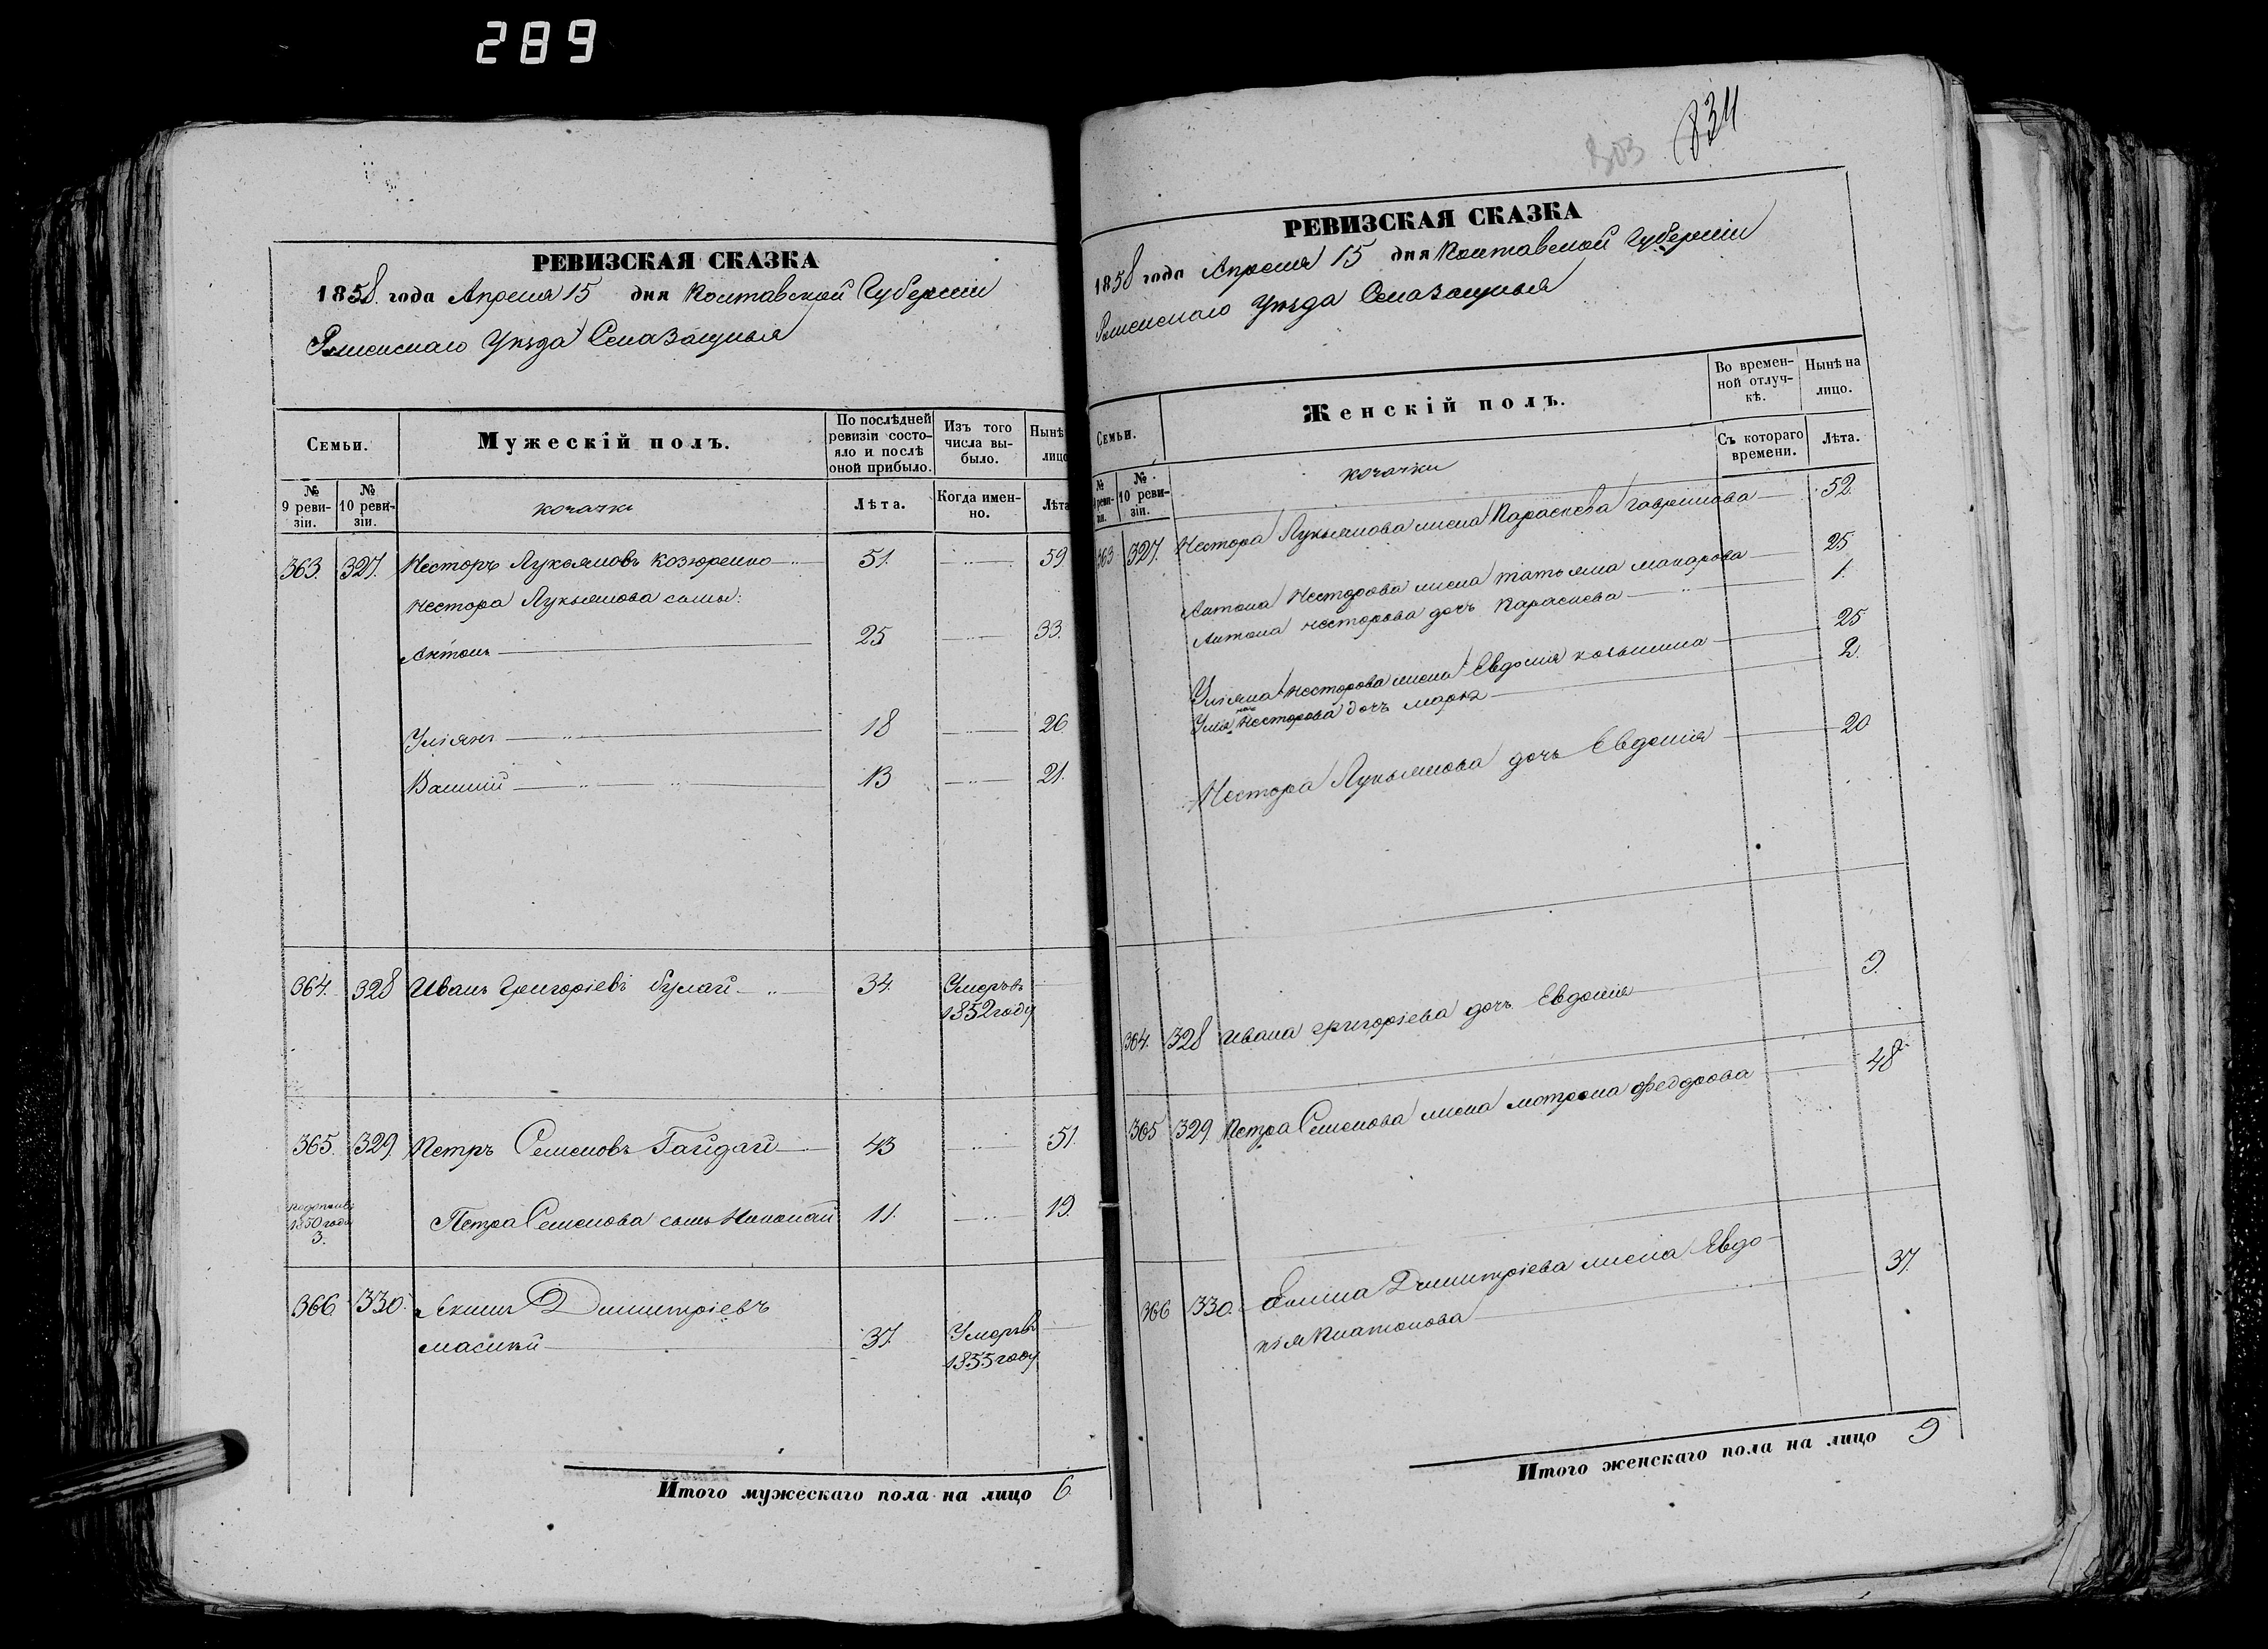 289
РЕВИЗСКАЯ СКАЗКА
1858 года Апреля 15 дня Полтавской Губернии
Роменского Уѣзда Села Засулья
Семьи.
Мужескій полъ.
По послѣдней ревизіи состояло и послѣ оной прибыло.
Изъ того числа выбыло.
Нынѣ лицо
№ 9 ревизіи.
№ 10 ревизіи.
козачки
Лѣта.
Когда именно.
Лѣта
363. 327. Несторъ Лукьяновъ Козюренко 51. 59
Нестора Лукьянова сыны:
Антонъ 25 33.
Уліянъ 18 26.
Василій 13 21.
364. 328 Иванъ Григоріевъ Булай 34. Умеръ въ
1852 году
365. 329. Петръ Семеновъ Гайдай 43 51.
1850 года
3.
Петра Семенова сынъ Николай 11. 19.
366 330. Акимъ Димитріевъ
37. Умеръ въ
1855 году
Итого мужескаго пола на лицо 6
303 834
РЕВИЗСКАЯ СКАЗКА
1858 года Апреля 15 дня Полтавской Губернии
Роменского Уѣзда Села Засулья
Семьи.
Женскій полъ.
Во временной отлучкѣ.
Нынѣ на лицо.
№ 9 ревизіи.
№ 10 ревизіи.
козачки
Съ котораго времени.
Лѣта.
363 327. Нестора Лукьянова жена Параскева Гаврилова 52.
Антона Несторова жена Татьяна Макарова 25
Антона Несторова дочь Параскева 1.
Уліяна Несторова жена Евдокія 25
Несторова дочь Марья 2.
Нестора Лукьянова дочь Евдокія 20
364. 328 Ивана Григоріева дочь Евдокія 9.
365 329. Петра Семенова жена Мотрона Федорова 48
366 330. Акима Димитріева жена Явдо-
кія Платонова 37.
Итого женскаго пола на лицо 9